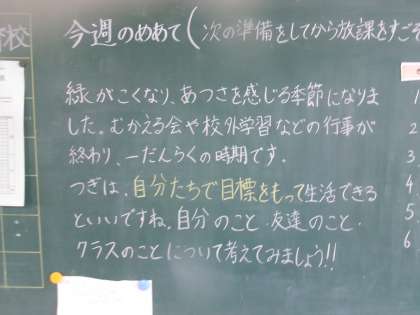 校
今週のめあて(次の準備をしてから放課をすご
緑がこくなり、あつさを感じる季節になりま
した。むかえる会や校外学習などの行事が
終わり、一だんらくの時期です。
つぎは、自分たちで目標をもって生活できる
といいですね。自分のこと・友達のこと・
クラスのことについて考えてみましょう!!
1
2
3
4
5
6